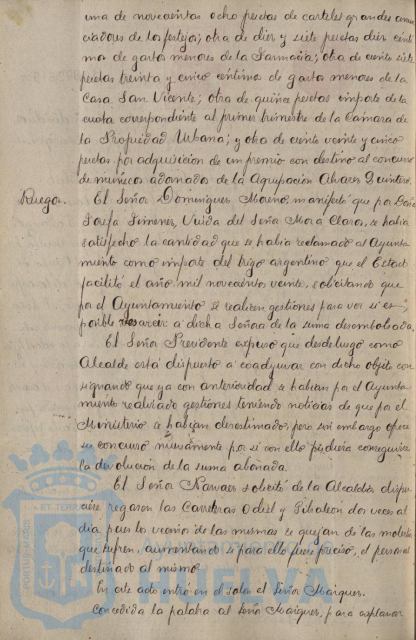 una de novecientas ocho pesetas de carteles grandes anun-
ciadores de los festejos; otra de diez y siete pesetas diez cénti
mos de gastos menores de la Farmacia; otra de ciento siete
pesetas treinta y cinco céntimos de gastos menores de la
Casa San Vicente; otra de quince pesetas importe de la
cuota correspondiente al primer trimestre de la Cámara de
la Propiedad Urbana; y otra de ciento veinte y cinco
pesetas por adquisición de un premio con destino al concurso
de muñecos adornados de la Agrupación Alvarez Quintero.
Ruego.
El Señor Domínguez Moreno manifestó que por Doña
Josefa Jimenez, Viuda del Señor Mora Claros, se había
satisfecho la cantidad que se había reclamado al Ayunta-
miento como importe del trigo argentino que el Estado
facilitó el año mil novecientos veinte, solicitando que
por el Ayuntamiento se realicen gestiones para ver si es
posible resarcir a dicha Señora de la suma desembolsada.
El Señor Presidente expresó que desde luego como
Alcalde está dispuesto a coadyuvar con dicho objeto con
signando que ya con anterioridad se habían por el Ayunta-
miento realizado gestiones teniendo noticias de que por el
Ministerio se habían desestimado, pero sin embargo ofrece
su concurso nuevamente por si con ello pudiera conseguirse
la devolución de la suma abonada.
El Señor solicitó de la Alcaldía dispu-
siere regaran las Carreteras Odiel y Gibraleon dos veces al
día pues los vecinos de las mismas se quejan de las molestias
que sufren, aumentando si para ello fuere preciso, el personal
destinado al mismo.
En este acto entró en el salón el Señor Marquez.
Concedida la palabra al Señor Marquez, para explanar
PORTUS MARIS
ET TERRAE
HUELVA